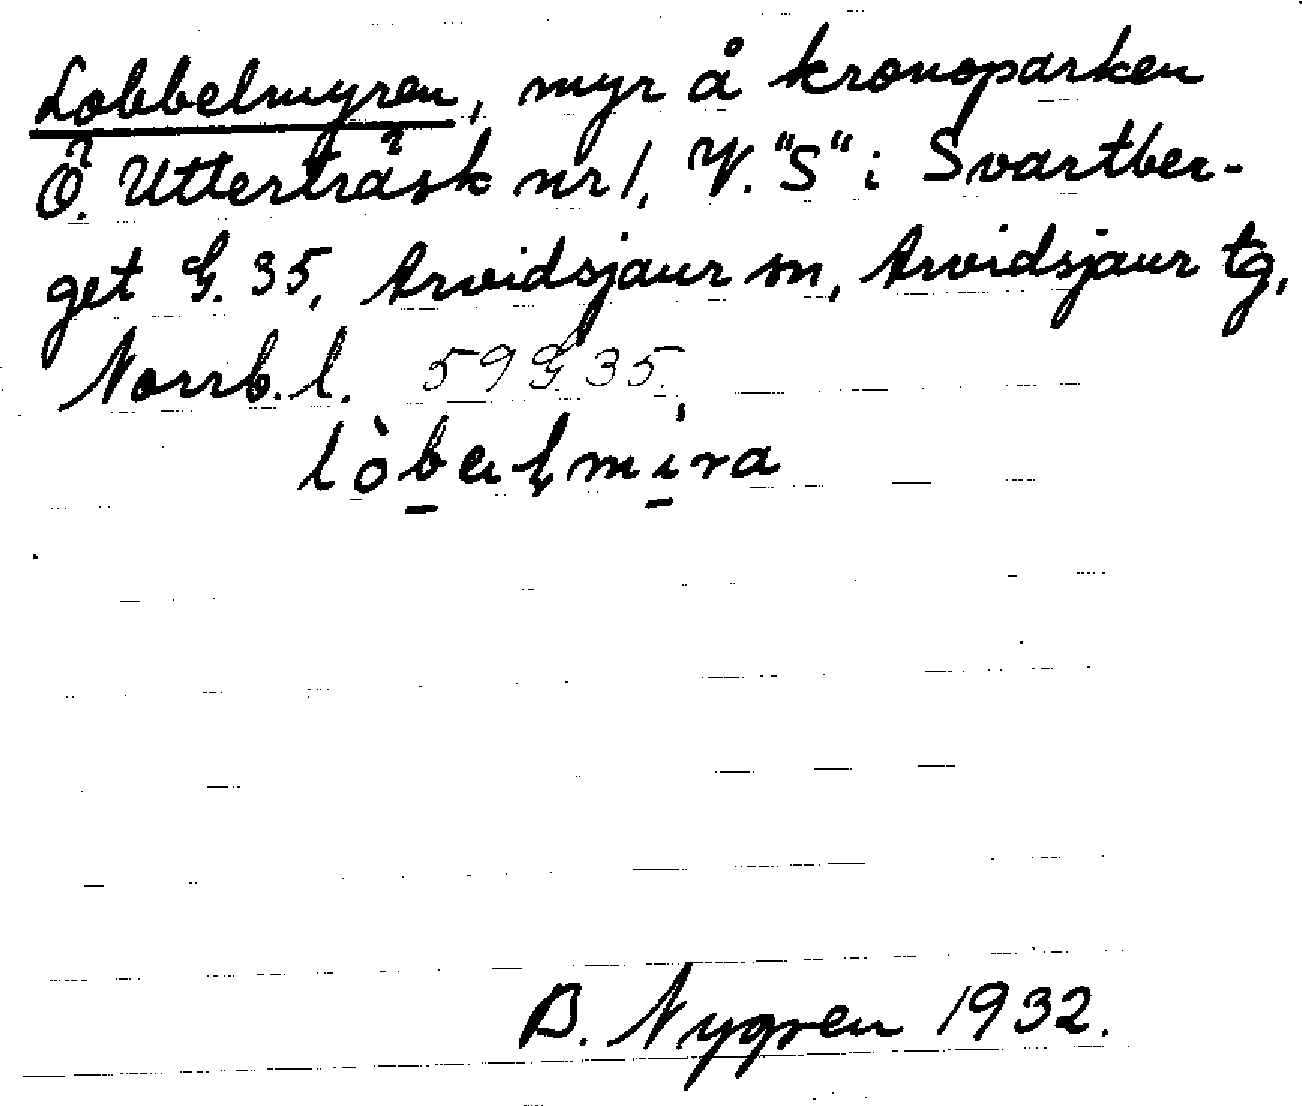 Lobbelmyren, myr å kronoparken
Ö. Utterträsk nr 1, V. "S" i Svartber-
get G. 35, Arvidsjaur sn, Arvidsjaur tg,
Norrb. l. 59 G 35.
B. Nygren 1932.